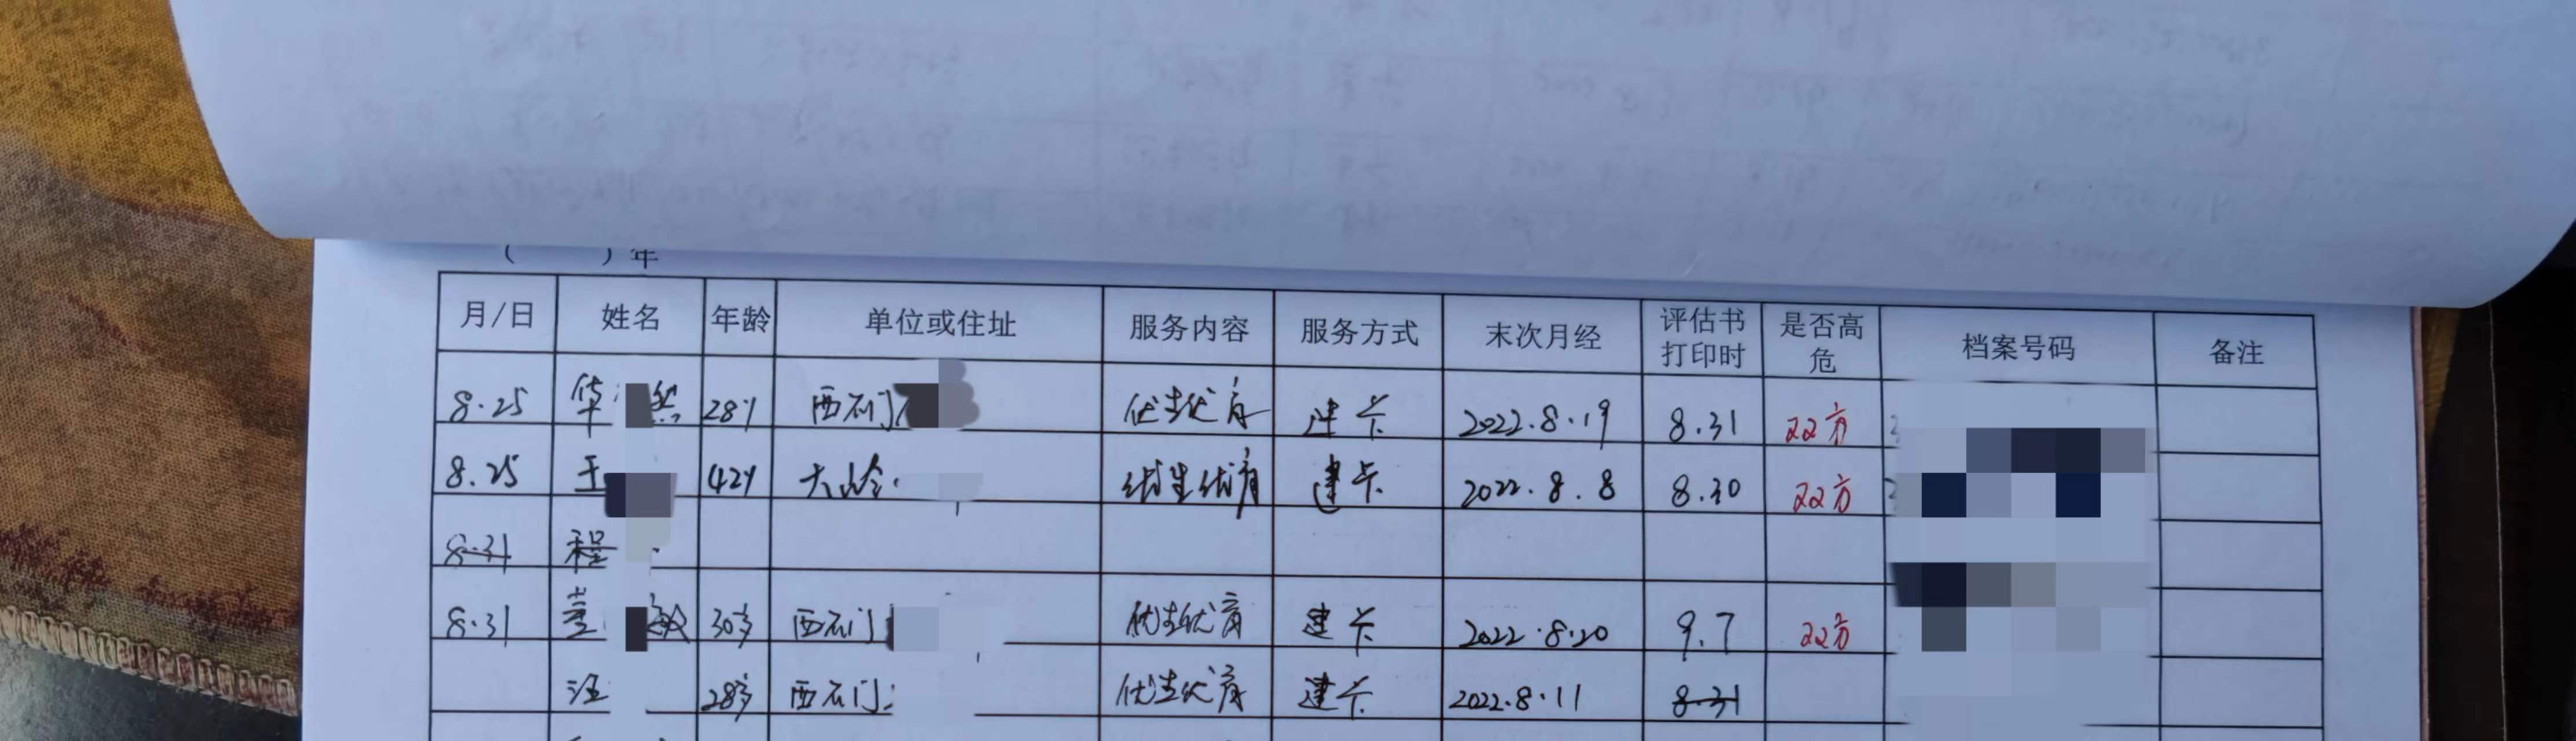 ( ) 年
月/日 姓名 年龄 单位或住址 服务内容 服务方式 末次月经 评估书打印时 是否高危 档案号码 备注
8.25 华 然 28岁 西石门 优生优育 建卡 2022.8.19 8.31 双方
8.25 王 42岁 大岭 优生优育 建卡 2022.8.8 8.30 双方
8.31 程
8.31 30岁 西石门 优生优育 建卡 2022.8.20 9.7 双方
汪 28岁 西石门 优生优育 建卡 2022.8.11 8.31